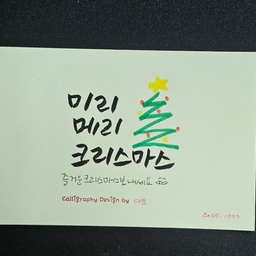 미리
메리
크리스마스
즐거운 크리스마스 보내세요
Calligraphy Design by